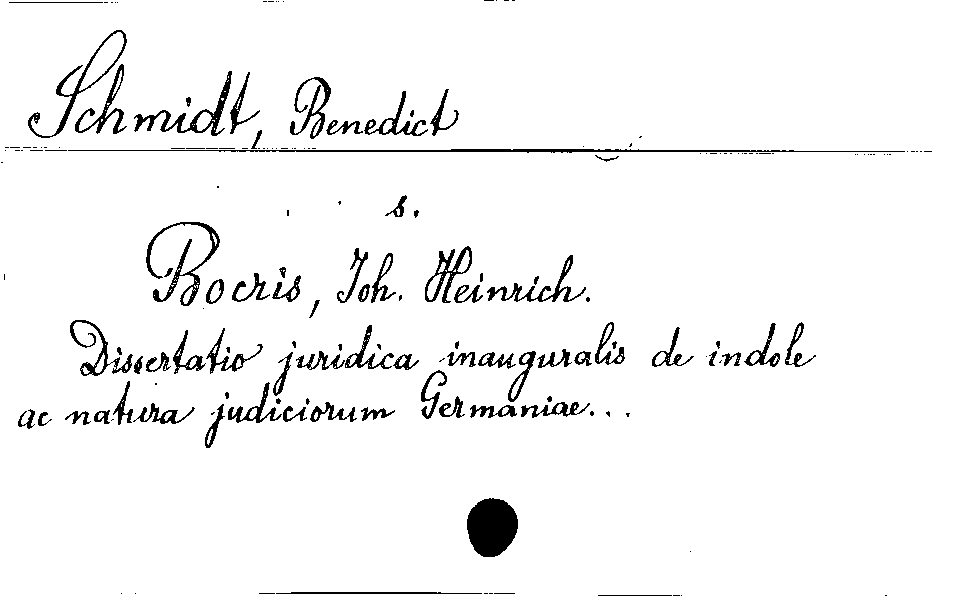 Schmidt, Benedict
s.
Bocris, Joh. Heinrich.
Dissertatio juridica inauguralis de indole
ac natura judiciorum Germaniae...